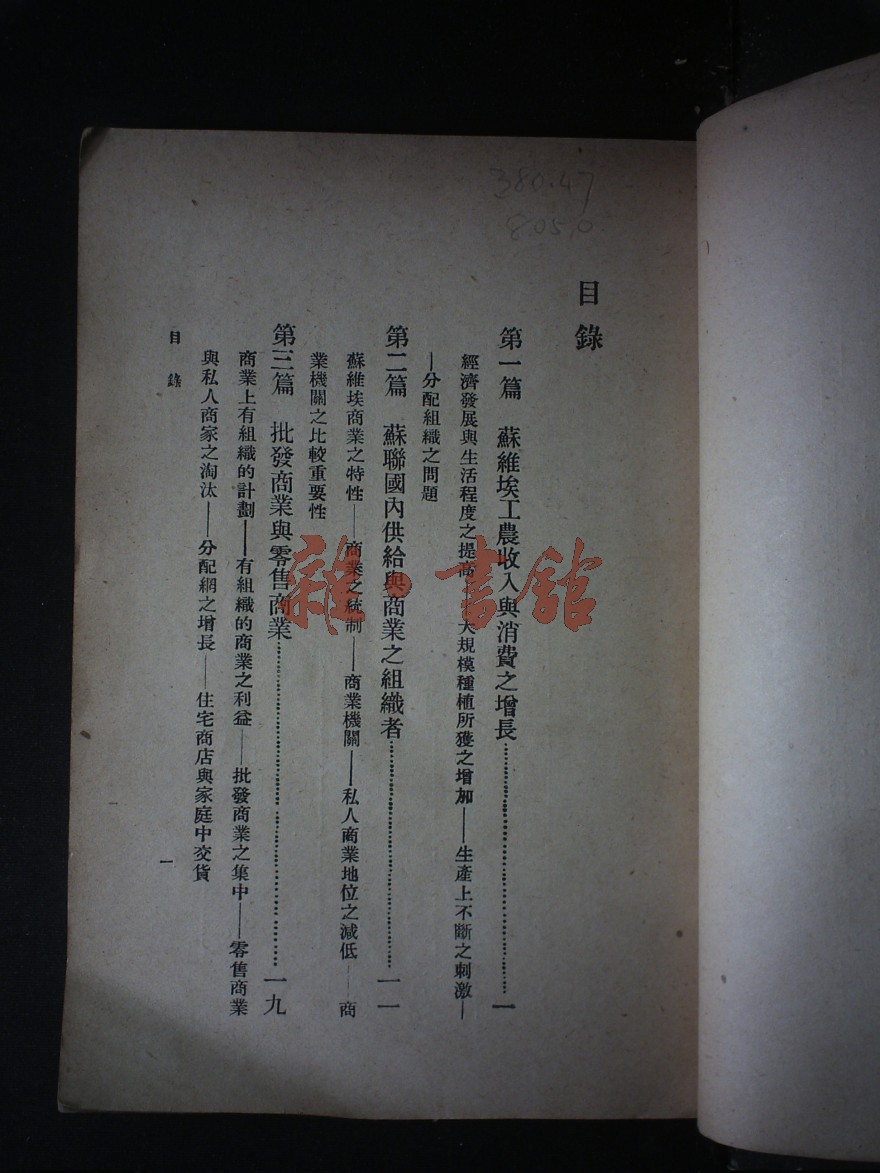 380.47
805.0
目錄
第一篇　蘇維埃工農收入與消費之增長……………一
經濟發展與生活程度之提高——大規模種植所獲之增加——生產上不斷之刺激—
—分配組織之問題
第二篇　蘇聯國內供給與商業之組織者……………一一
蘇維埃商業之特性——商業之統制——商業機關——私人商業地位之減低——商
業機關之比較重要性
第三篇　批發商業與零售商業……………一九
商業上有組織的計劃——有組織的商業之利益——批發商業之集中——零售商業
與私人商家之淘汰——分配網之增長——住宅商店與家庭中交貨
目錄
一
雜·書館